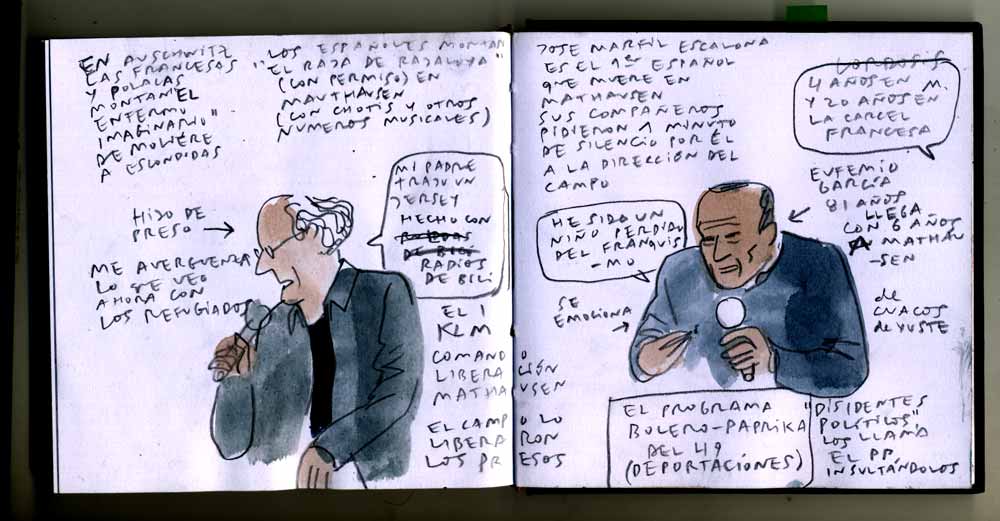 EN AUSCHWITZ
LAS FRANCESAS
Y POLACAS
MONTAN "EL
ENFERMO
IMAGINARIO"
DE MOLIÈRE
A ESCONDIDAS
LOS ESPAÑOLES MONTAN
"EL RAJA DE RAJALOYA"
(CON PERMISO) EN
MAUTHAUSEN
(CON CHOTIS Y OTROS
NUMEROS MUSICALES)
MI PADRE
TRAJO UN
JERSEY
HECHO CON
RUEDAS
DE BICI
RADIOS
DE BICI
HIJO DE
PRESO
ME AVERGUENZA
LO QUE VEO
AHORA CON
LOS REFUGIADOS
EL 1
KLM
COMANDO
LIBERACIÓN
MATHAUSEN
EL CAMPO LO
LIBERARON
LOS PRESOS
JOSE MARFIL ESCALONA
ES EL 1er ESPAÑOL
QUE MUERE EN
MATHAUSEN
SUS COMPAÑEROS
PIDIERON 1 MINUTO
DE SILENCIO POR ÉL
A LA DIRECCIÓN DEL
CAMPO
CORDOSIS
4 AÑOS EN M.
Y 20 AÑOS EN
LA CARCEL
FRANCESA
EUFEMIO
GARCÍA
81 AÑOS
LLEGA
CON 6 AÑOS
A MATHAU
-SEN
HE SIDO UN
NIÑO PERDIDO
DEL FRANQUIS
-MO
SE
EMOCIONA
de
CUACOS
de YUSTE
EL PROGRAMA
BOLERO-PAPRIKA
DEL 49
(DEPORTACIONES)
"DISIDENTES
POLÍTICOS",
LOS LLAMA
EL PP,
INSULTÁNDOLOS